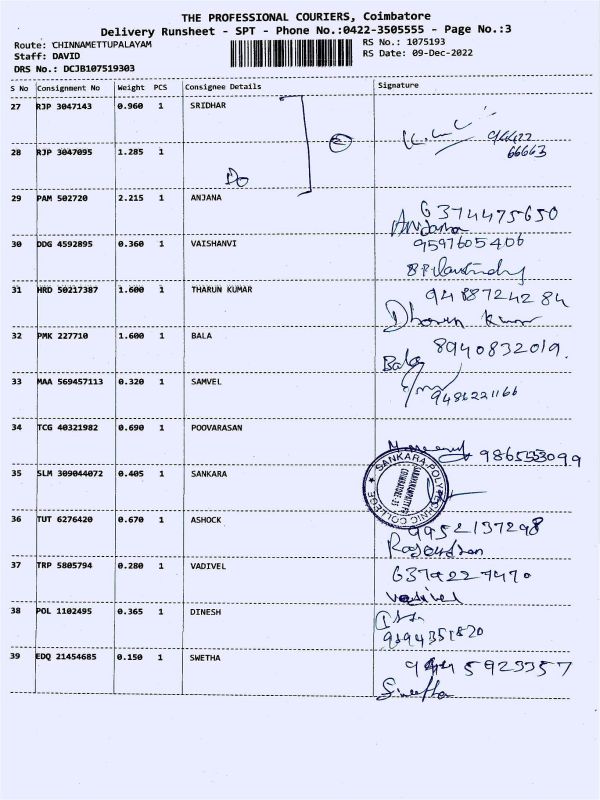 THE PROFESSIONAL COURIERS, Coimbatore
Delivery Runsheet - SPT - Phone No.:0422-3505555 - Page No.:3
Route: CHINNAMETTUPALAYAM RS No.: 1075193
Staff: DAVID RS Date: 09-Dec-2022
DRS No.: DCJB107519303
S No Consignment No Weight PCS Consignee Details Signature
27 RJP 3047143 0.960 1 SRIDHAR
94422
66663
28 RJP 3047095 1.285 1
Do
29 PAM 502720 2.215 1 ANJANA
6374475650
Anjana
30 DDG 4592895 0.360 1 VAISHANVI
9597605406
31 HRD 50217387 1.600 1 THARUN KUMAR
9488724284
Dharun Kumar
32 PMK 227710 1.600 1 BALA
8940832019.
Bala
33 MAA 569457113 0.320 1 SAMVEL
9486221166
34 TCG 40321982 0.690 1 POOVARASAN
9865553099
35 SLM 309044072 0.405 1 SANKARA
SANKARA POLYTECHNIC COLLEGE
36 TUT 6276420 0.670 1 ASHOCK
9952137298
37 TRP 5805794 0.280 1 VADIVEL
6379227470
Vadivel
38 POL 1102495 0.365 1 DINESH
9194351820
39 EDQ 21454685 0.150 1 SWETHA
9445923357
Swetha